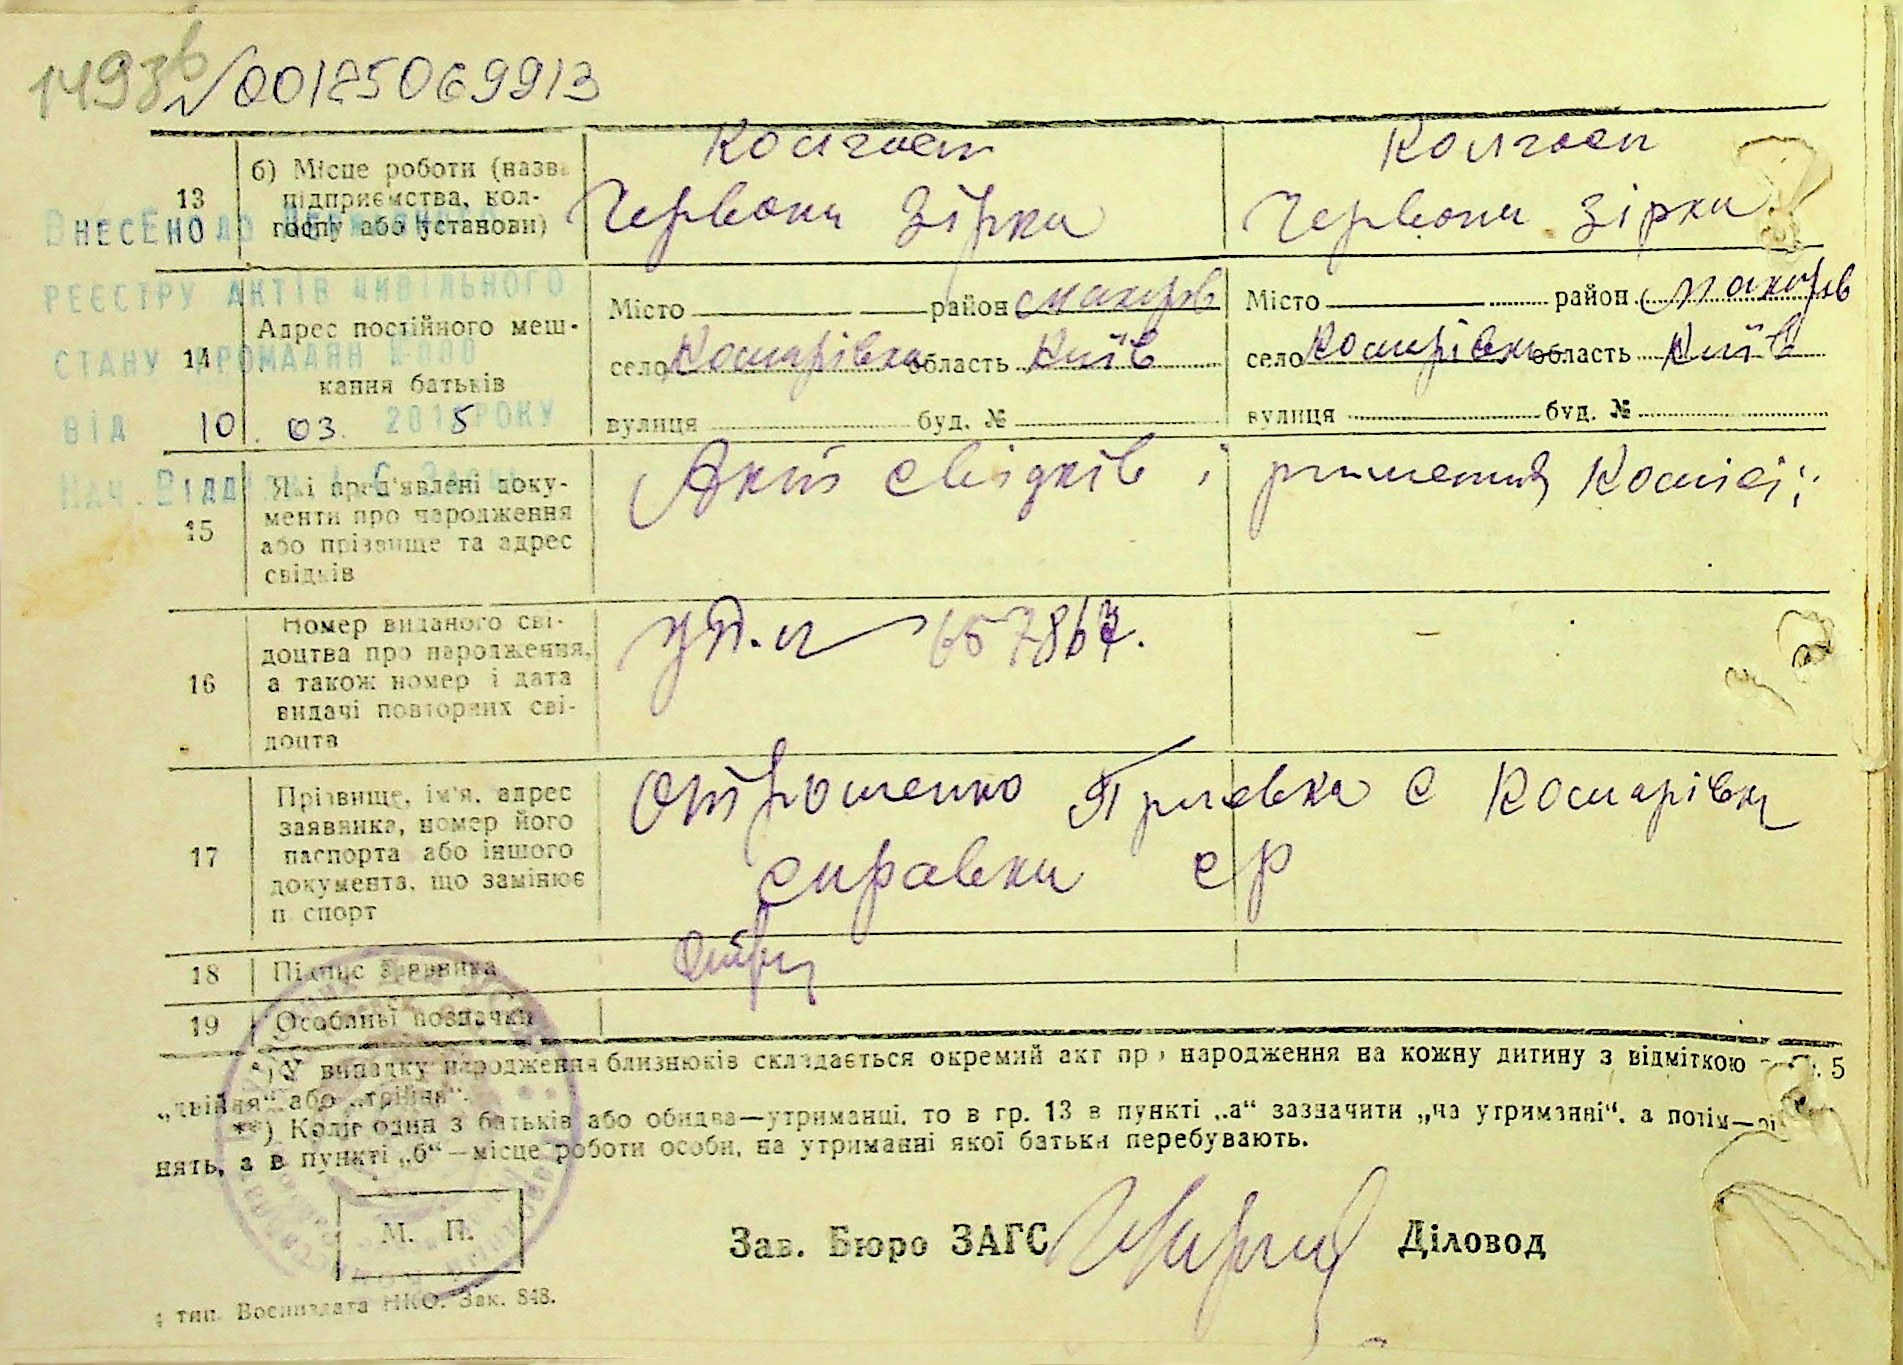 1493 № 00125069913
13 б) Місце роботи (назва
підприємства, кол-
госпу або установи)
Колгосп
Червона Зірка
Колгосп
Червона Зірка
ВНЕСЕНО ДО ДЕРЖАВНОГО
РЕЄСТРУ АКТІВ ЦИВІЛЬНОГО
СТАНУ ГРОМАДЯН
ВІД 10. 03. 2015 РОКУ
НАЧ. ВІДДІЛУ
14 Адрес постійного меш-
кання батьків
Місто район Макарів
село Комарівка область Київ
вулиця буд. №
Місто район Макарів
село Комарівка область Київ
вулиця буд. №
15 Які пред'явлені доку-
менти про народження
або прізвище та адрес
свідків
Акт свідків і рішення Комісії
16 Номер виданого сві-
доцтва про народження,
а також номер і дата
видачі повторних сві-
доцтв
17 Прізвище, ім'я, адрес
заявника, номер його
паспорта або іншого
документа, що замінює
паспорт
с Комарівка
справка с/р
18 Підпис заявника
19 Особливі позначки
*) У випадку народження близнюків складається окремий акт про народження на кожну дитину з відміткою 5
„двійня“ або „трійня“.
**) Коли один з батьків або обидва—утриманці, то в гр. 13 в пункті „а“ зазначити „на утриманні“, а потім—
нять, а в пункті „б“—місце роботи особи, на утриманні якої батьки перебувають.
М. П.
Зав. Бюро ЗАГС Діловод
4 тип. Воениздата НКО. Зак. 848.